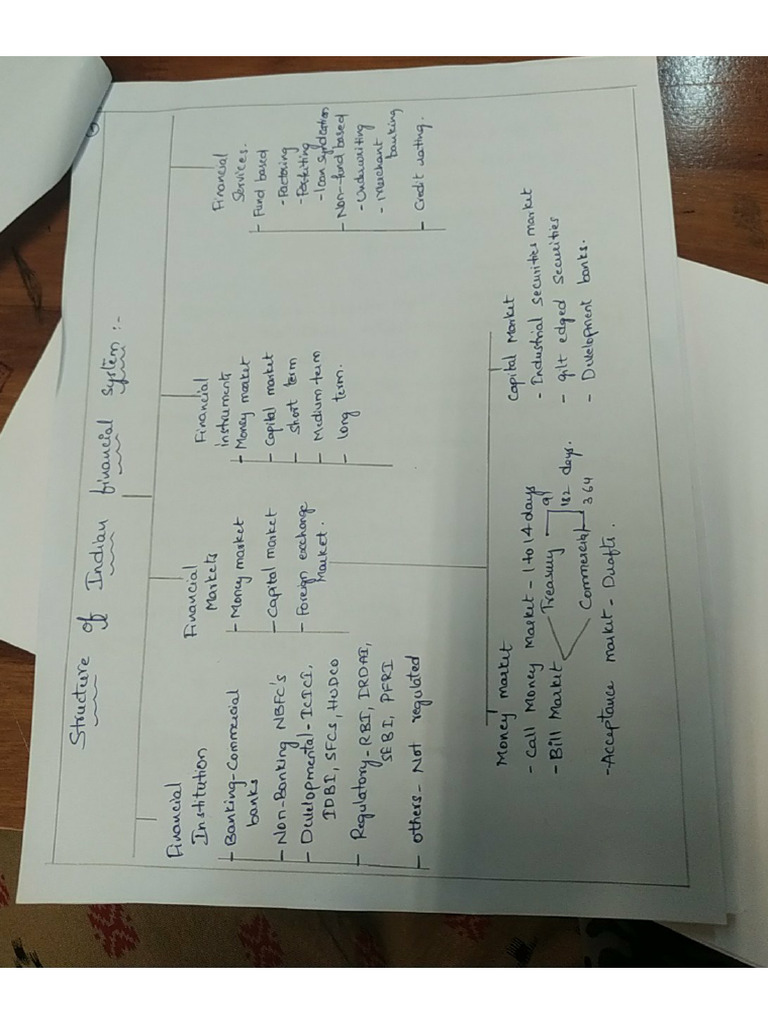 Structure of Indian financial system :-
Financial
Institution
- Banking-Commercial
banks
- Non-Banking NBFC's
- Developmental-ICICI,
IDBI, SFCs, HUDCO
- Regulatory-RBI, IRDAI,
SEBI, PFRI
- others- Not regulated
Financial
Markets
- Money market
- Capital market
- Foreign exchange
Market.
Financial
instruments
- Money market
- Capital market
- short term
- Medium term
- long term.
Financial
Services.
- Fund based
- Factoring
- Forfeiting
- loan syndication
- Non-fund based
- Underwriting
- Merchant
banking
- Credit rating.
Money market
- Call Money Market - 1 to 14 days
- Bill Market
Treasury
91
182 days.
364
Commercial
- Acceptance market - Drafts.
Capital Market
- Industrial securities market
- gilt edged securities
- Development banks.